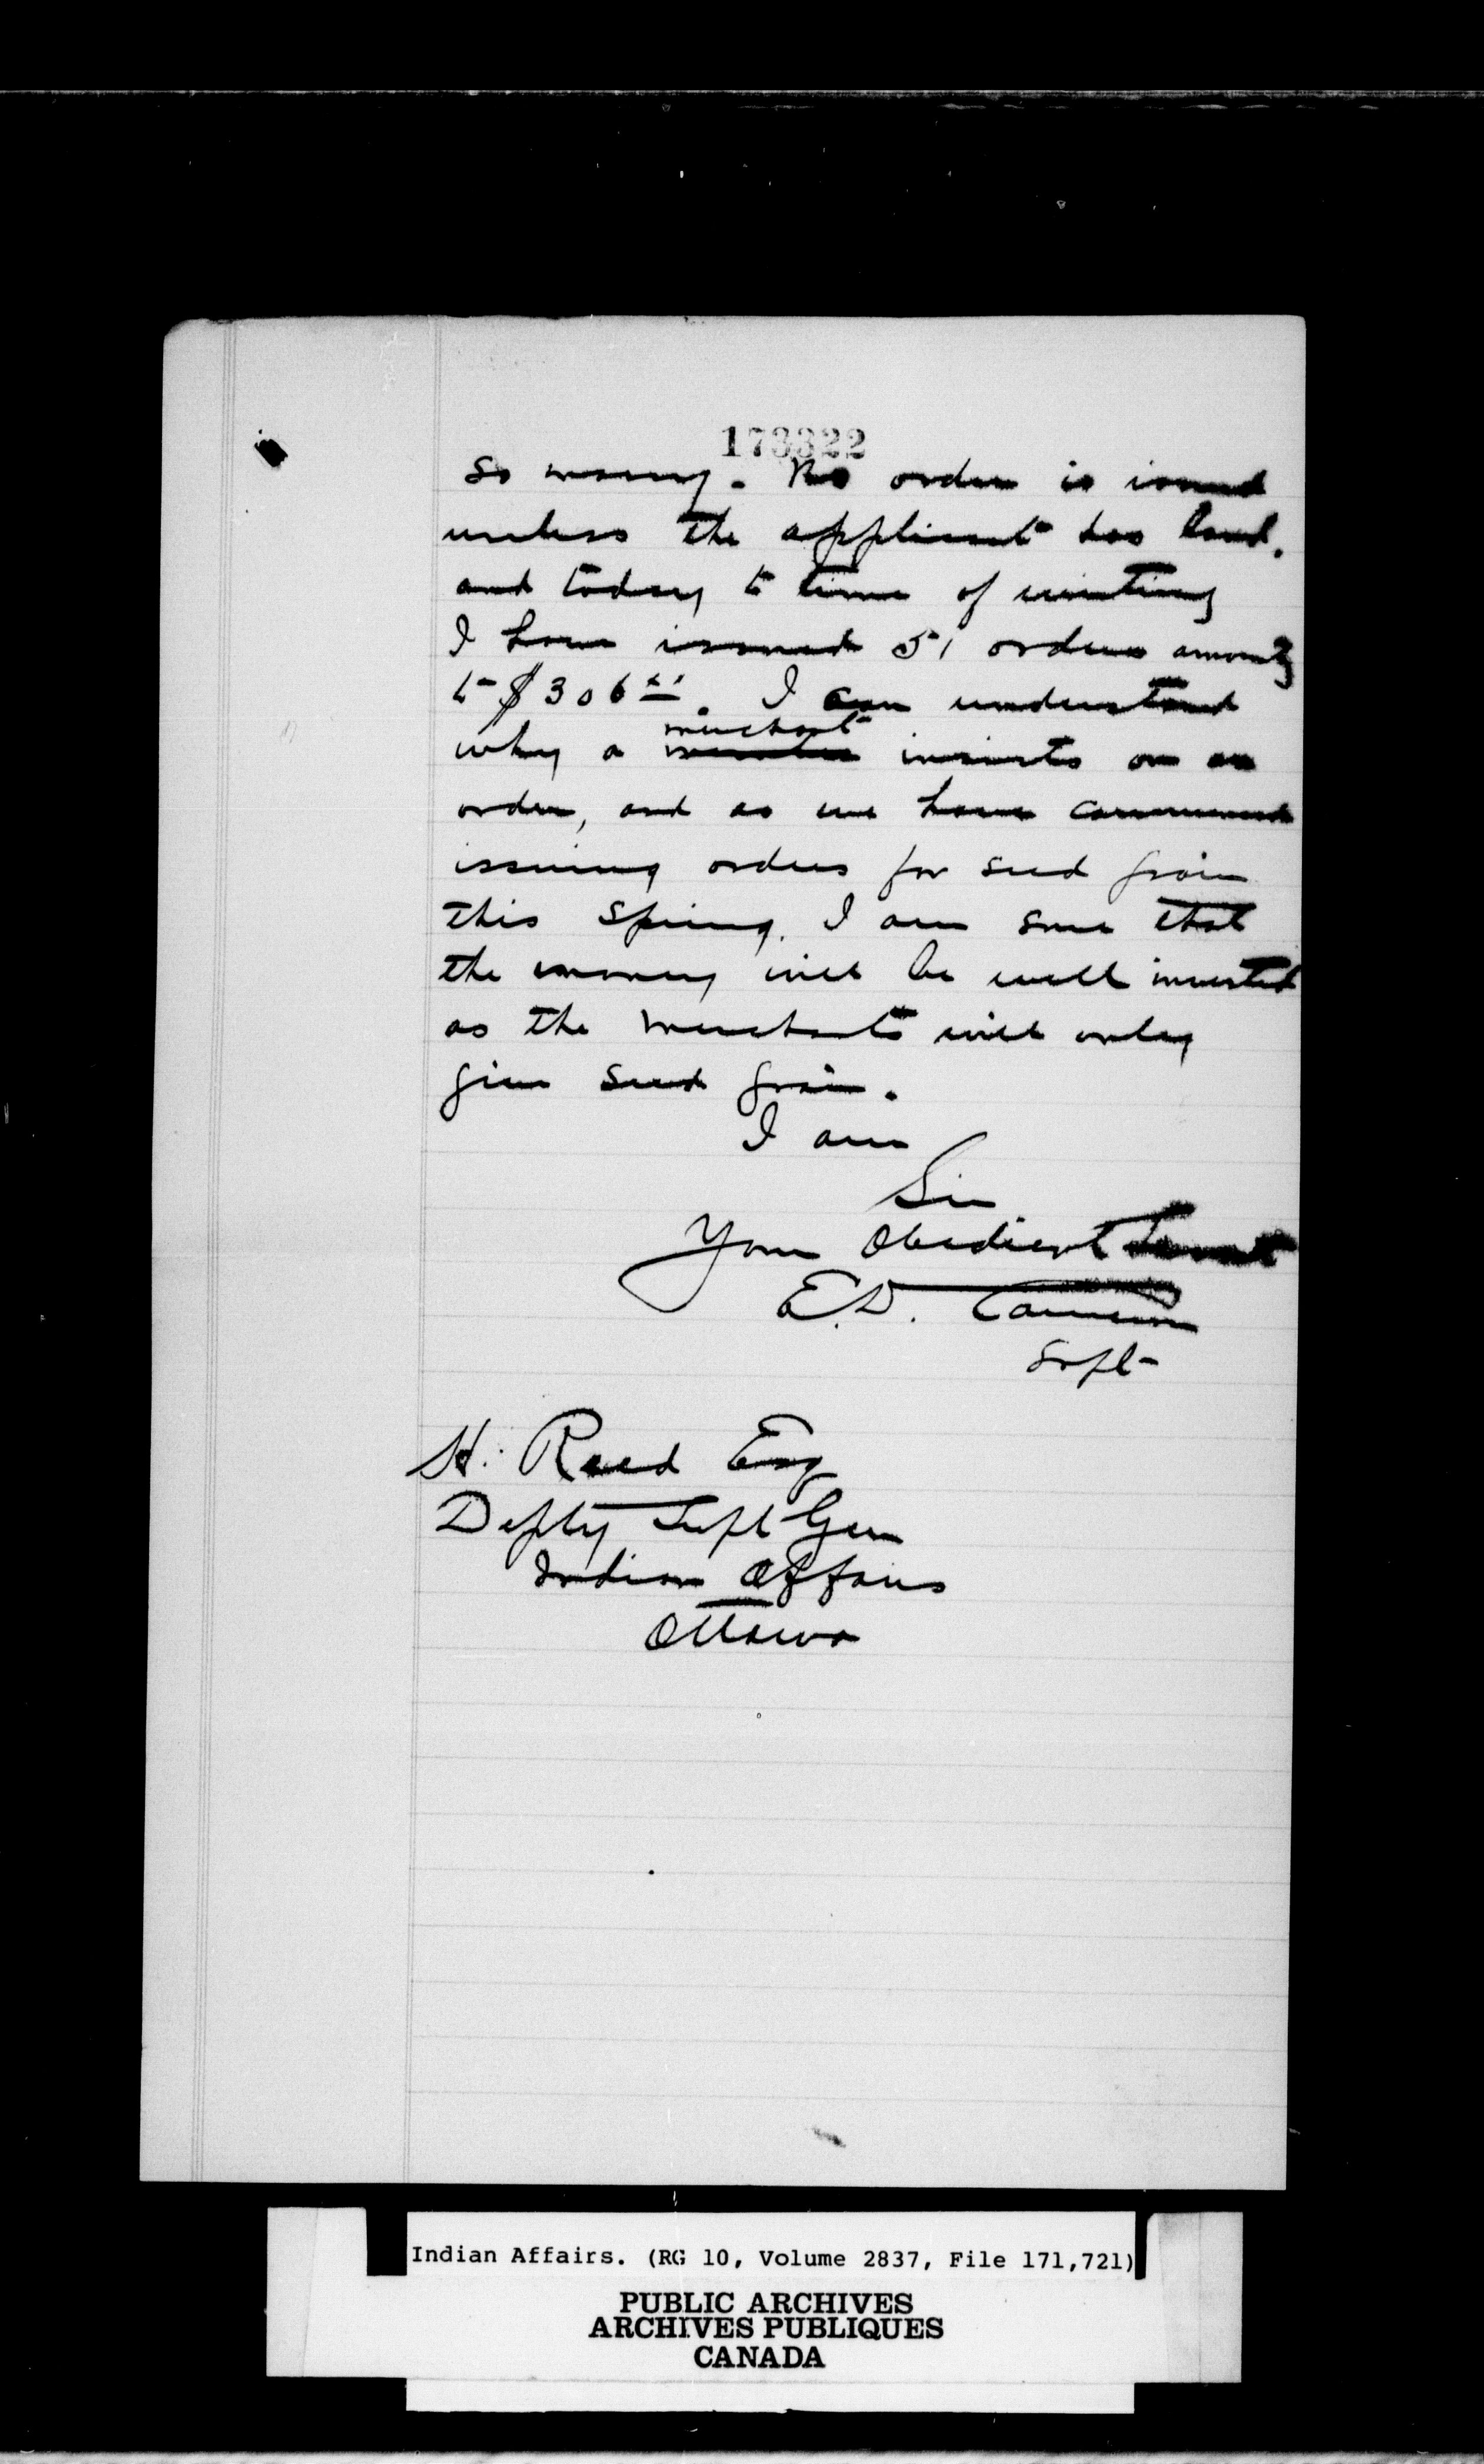 173322
so many. No order is issued
unless the applicant has land.
and today to time of writing
I have issued 51 orders amountg
to $306.xx. I can understand
merchant
why a insists on an
order, and as we have commenced
issuing orders for seed grain
this spring. I am sure that
the money will be well invested
as the merchants will only
give seed grain.
I am
Sir
Your Obedient Servant
E.D. Cameron
Supt
H. Reed Esq
Depty Supt Gen
Indian Affairs
Ottawa
Indian Affairs. (RG 10, Volume 2837, File 171,721)
PUBLIC ARCHIVES
ARCHIVES PUBLIQUES
CANADA